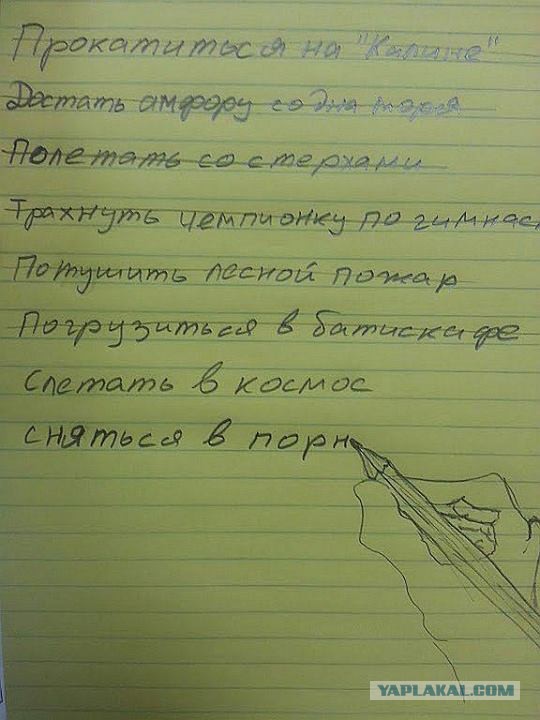 Прокатиться на "Калине"
Достать амфору со дна моря
Полетать со стерхами
Трахнуть чемпионку по гимнас
Потушить лесной пожар
Погрузиться в батискафе
Слетать в космос
сняться в порн
YAPLAKAL.COM